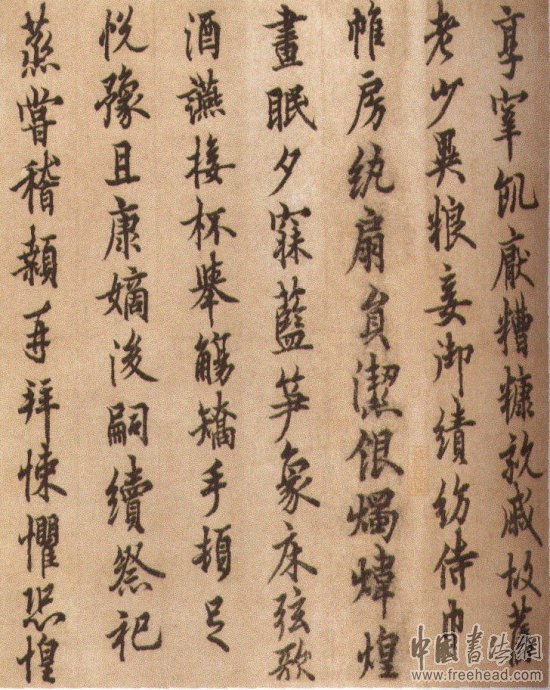 享宰飢厭糟糠親戚故舊
老少異粮妾御績紡侍巾
帷房紈扇員潔銀燭煒煌
晝眠夕寐藍笋象床弦歌
酒讌接杯舉觴矯手頓足
悅豫且康嫡後嗣續祭祀
蒸嘗稽顙再拜悚懼恐惶
中國書法網
www.freehead.com